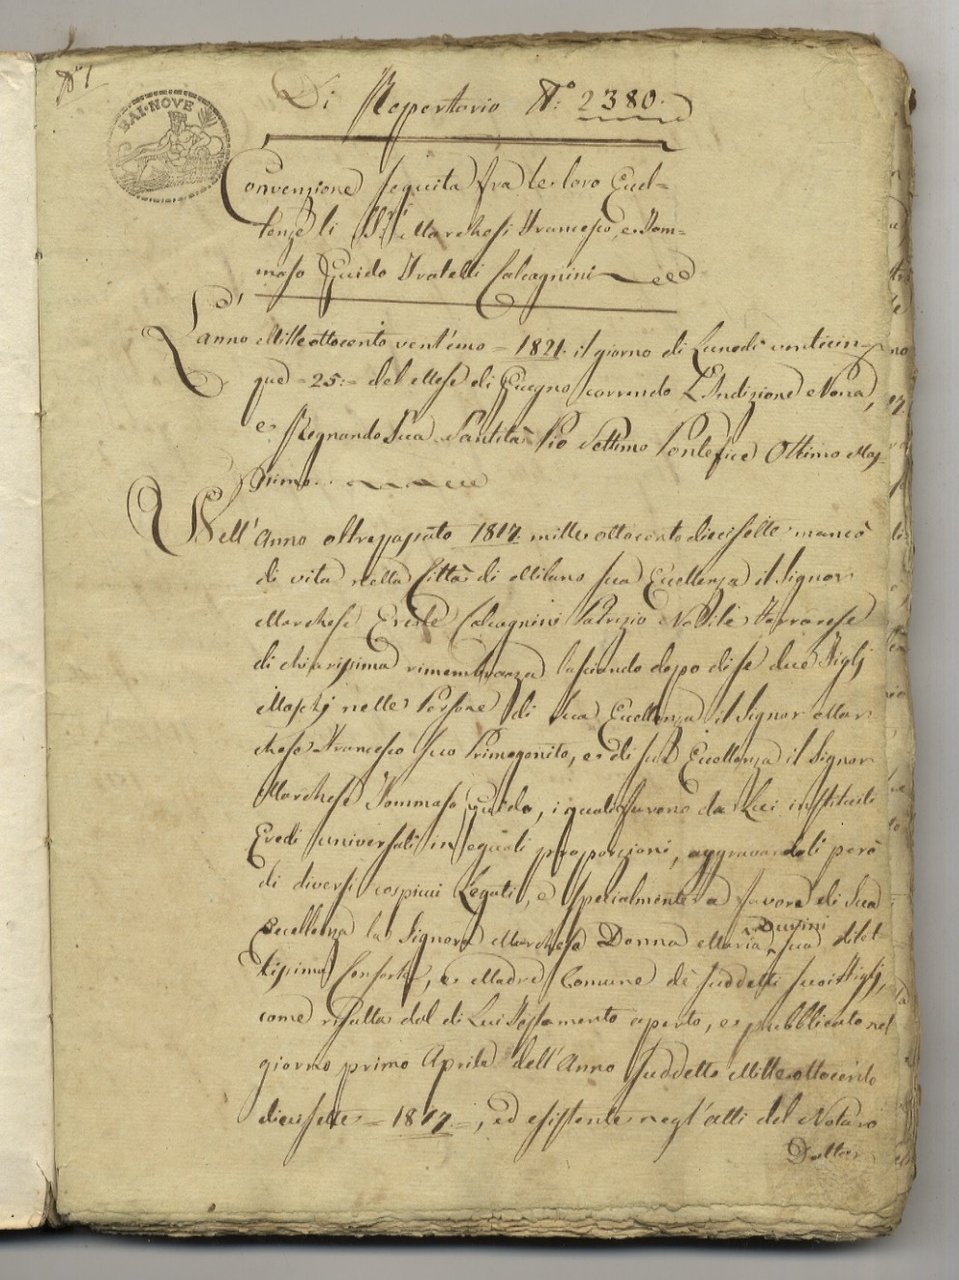 N.° 1
BAI·NOVE
Di Repertorio N.° 2380.
Convenzione seguita fra le loro Eccel=
lenze li Sig.ri Marchesi Francesco, e Tom=
maso Guido Fratelli Calcagnini
L'anno Mille ottocento vent'uno = 1821. il giorno di Lunedì venticin=
que = 25: = del Mese di Giugno correndo L'Indizione Nona,
e Regnando Sua Santità Pio Settimo Pontefice Ottimo Mas=
simo..
Nell'Anno oltrepassato 1817. mille ottocento diecisette mancò
di vita nella Città di Milano sua Eccellenza il Signor
Marchese Ercole Calcagnini Patrizio Nobile Ferrarese
di chiarissima rimembranza lasciando dopo di se due Figlj
Maschj nelle Persone di sua Eccellenza il Signor Mar=
chese Francesco suo Primogenito, e di sua Eccellenza il Signor
Marchese Tommaso Guido, i quali furono da Lui instituiti
Eredi universali in eguali proporzioni, aggravandoli però
di diversi cospicui Legati, e specialmente a favore di Sua
Eccellenza la Signora Marchesa Donna Maria Durini sua dilet
tissima Consorte, e Madre Comune de' suddetti suoi Figlj,
come risulta dal di Lui Testamento aperto, e pubblicato nel
giorno primo Aprile dell'Anno suddetto Mille ottocento
diecisette = 1817. =, ed esistente negl'atti del Notaro
Dottor